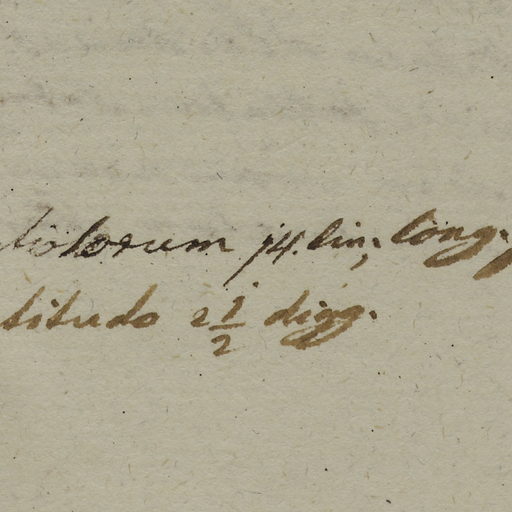 tiolorum 14. lin; long.
titudo 2 1/2 digg.